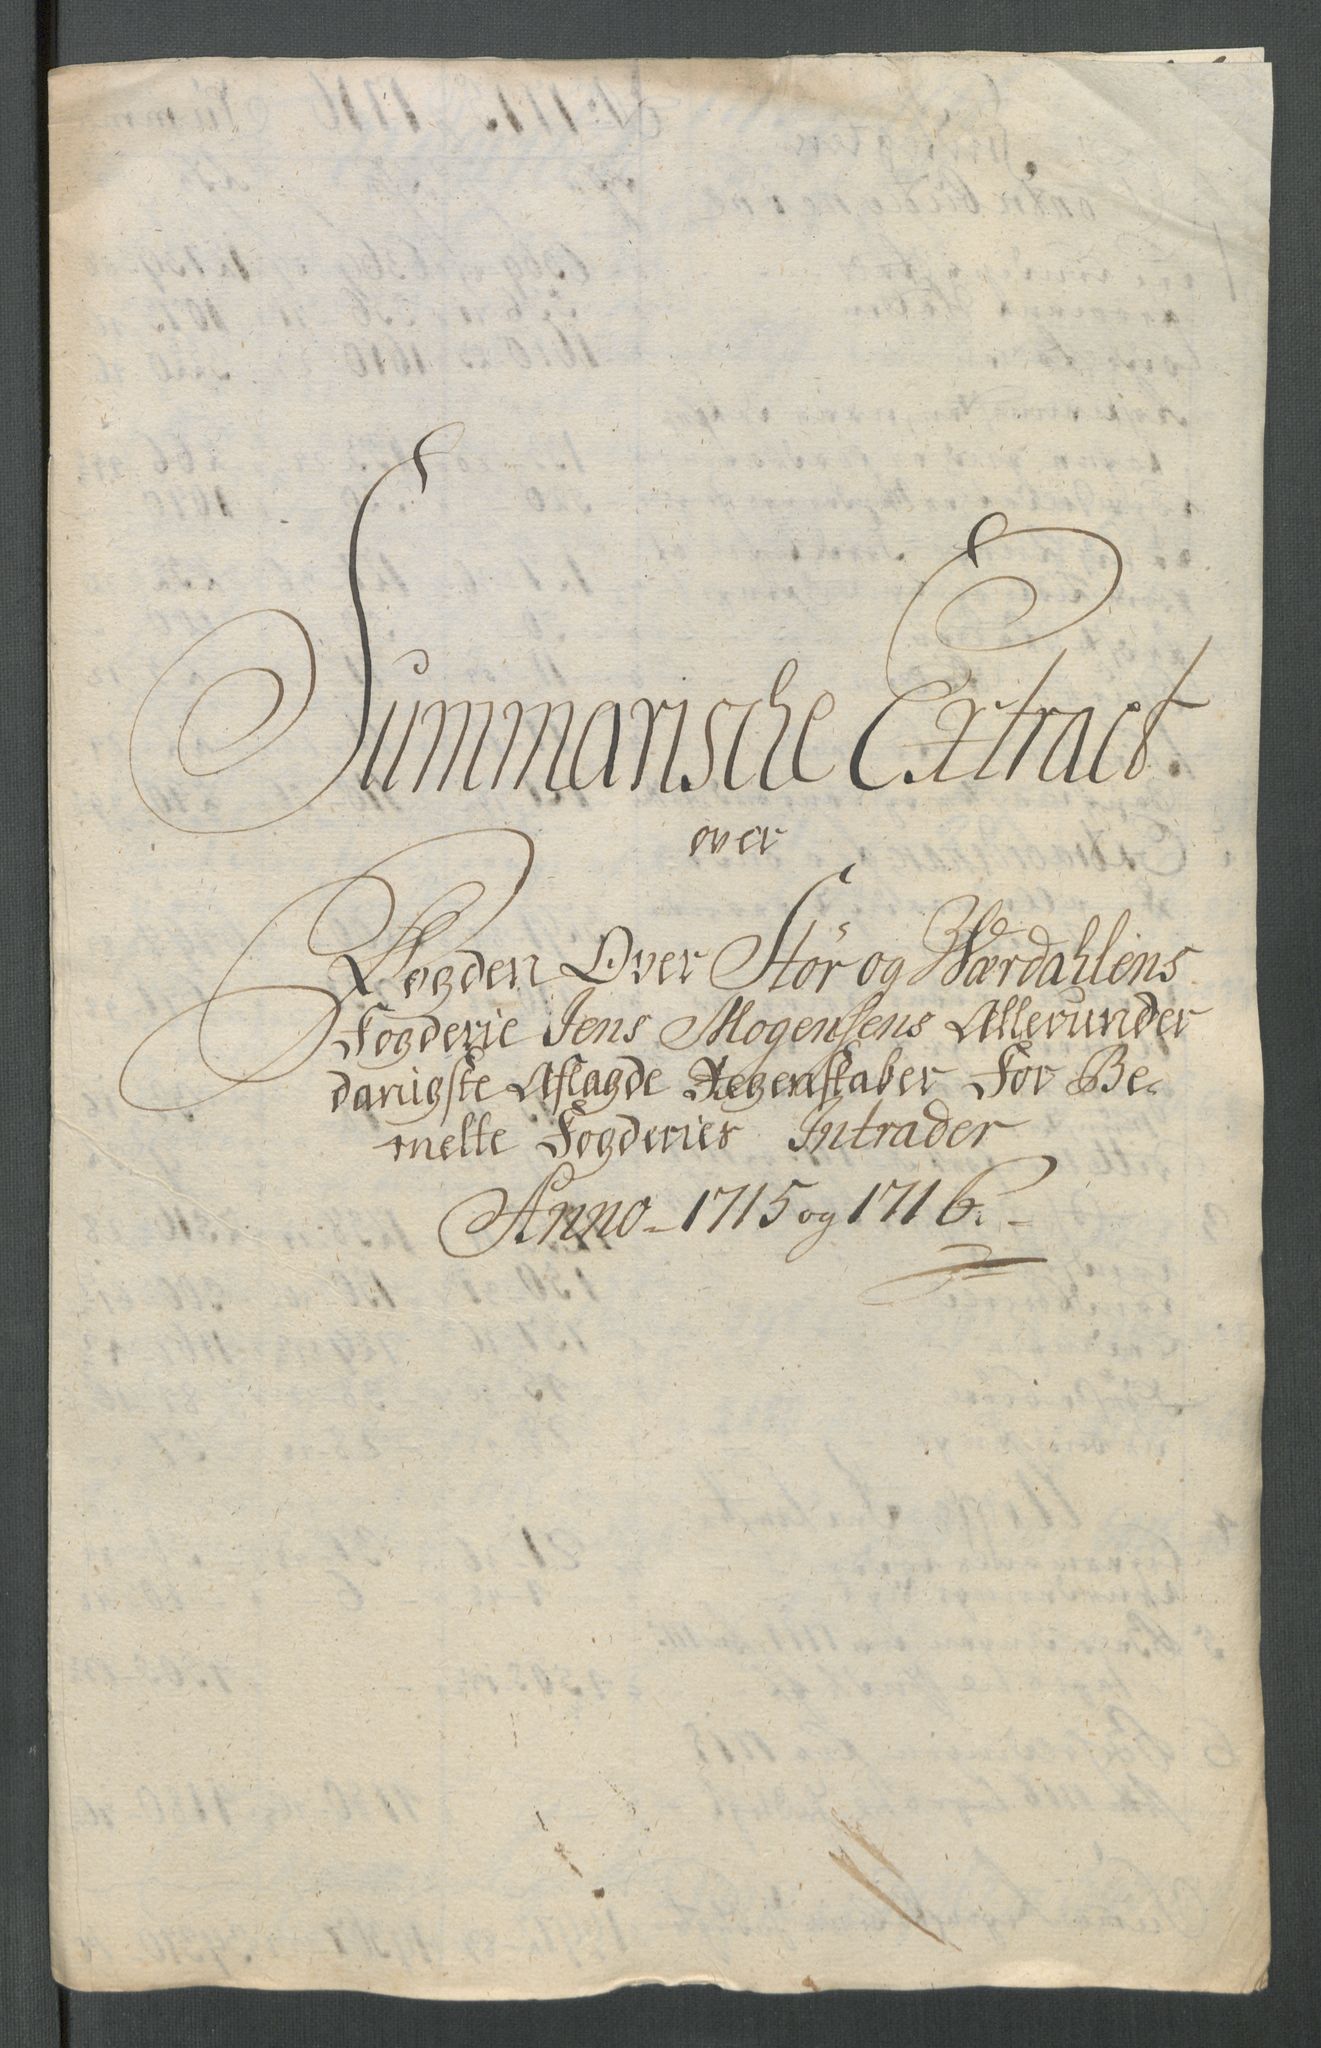 Summarische Extract
over
Fogden Over Stör og Wærdahlens
Fogderie Jens Mogensens Allerunder
danigste Aflagde Regenskaber For Be-
melte Fogderies Intrader
Anno - 1715 og 1716. -